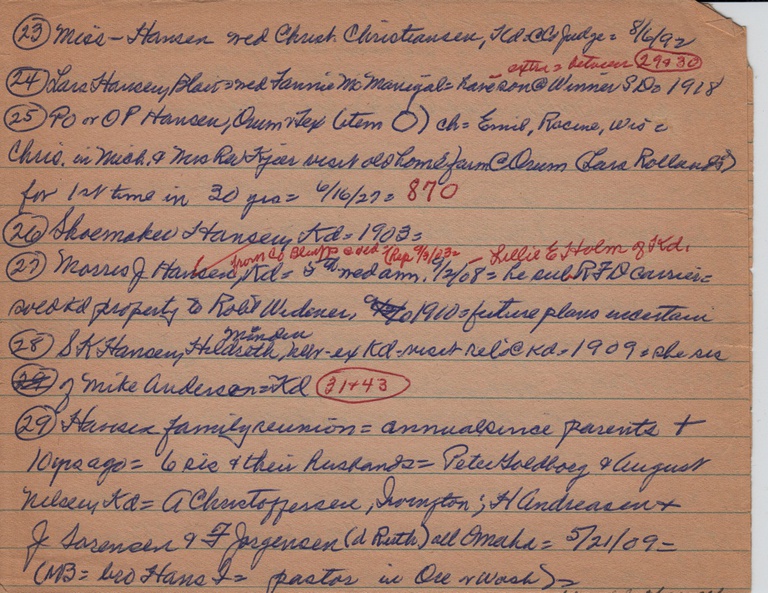 (23) Miss - Hansen wed Christ. Christiansen, Kd = Co Judge = 8/6/92
extra = between (29+30)
(24) Lars Hansen, Blair = wed Fannie McManigal = have son @ Winner S.D. 1918
(25) PO or OP Hansen, Orum + Tex (item O) ch = Emil, Racine, Wis
Chris. in Mich. & Mrs Rev Kjier visit old home farm @ Orum (Lars Rollands)
for 1st time in 30 yrs = 6/16/27 = 870
(26) Shoemaker Hansen, Kd = 1903 =
from Co Bluffs Rep 9/3/03 = - Lillie E Holm of Kd.
(27) Morris J Hansen, Kd = 5th wed ann. 9/2/08 = he sub RFD carrier =
sold Kd property to Robt Widener, 1910 = future plans uncertain
Minden
(28) S K Hansen, Hildreth, Nebr - ex Kd - visit rel @ Kd = 1909 = she sis
of Mike Anderson = Kd (31+43)
(29) Hansen family reunion = annual since parents +
10 yrs ago = 6 sis & their husbands = Peter Goldborg & August
Nelsen, Kd = A Christoffersen, Irvington; H Andreasen +
J Sorensen & F Jorgensen (d Ruth) all Omaha = 5/21/09 =
(NB = bro Hans I = pastor in Ore + Wash) =